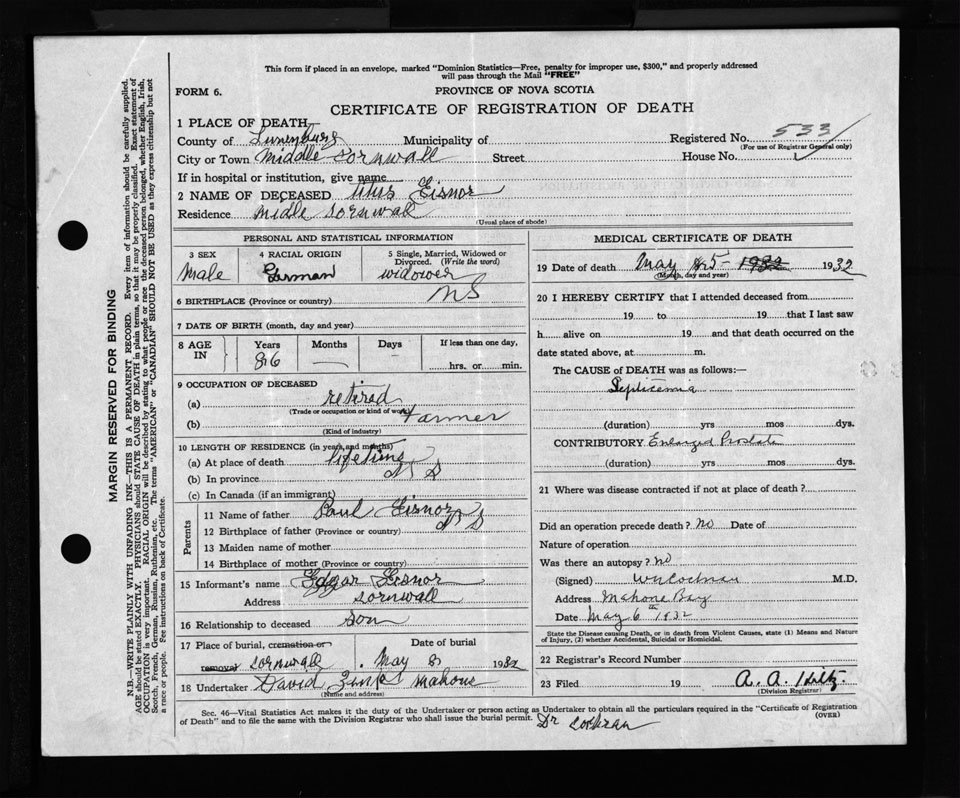 This form if placed in an envelope, marked "Dominion Statistics—Free, penalty for improper use, $300," and properly addressed
will pass through the Mail "FREE"
FORM 6.
PROVINCE OF NOVA SCOTIA
CERTIFICATE OF REGISTRATION OF DEATH
1 PLACE OF DEATH
County of Lunenburg Municipality of Registered No. 533
(For use of Registrar General only)
City or Town Middle Cornwall Street House No.
If in hospital or institution, give name
2 NAME OF DECEASED Titus Eisnor
Residence Midle Cornwall
(Usual place of abode)
PERSONAL AND STATISTICAL INFORMATION
3 SEX 4 RACIAL ORIGIN 5 Single, Married, Widowed or
Divorced. (Write the word)
Male German widower
6 BIRTHPLACE (Province or country) NS
7 DATE OF BIRTH (month, day and year)
8 AGE IN Years Months Days If less than one day,
86 — – hrs. or min.
9 OCCUPATION OF DECEASED
(a) retirad
(Trade or occupation or kind of work)
(b) Farmer
(Kind of industry)
10 LENGTH OF RESIDENCE (in years and months)
(a) At place of death lifetime
(b) In province N S
(c) In Canada (if an immigrant)
Parents
11 Name of father Paul Eisnor
12 Birthplace of father (Province or country) N S
13 Maiden name of mother
14 Birthplace of mother (Province or country)
15 Informant's name Edgar Eisnor
Address Cornwall
16 Relationship to deceased Son
17 Place of burial, cremation or Date of burial
removal Cornwall. May 8 1932
18 Undertaker David Zink Mahone
(Name and address)
MEDICAL CERTIFICATE OF DEATH
19 Date of death May 5 1932 1932
(Month, day and year)
20 I HEREBY CERTIFY that I attended deceased from
19 to 19 that I last saw
h alive on 19 and that death occurred on the
date stated above, at m.
The CAUSE of DEATH was as follows:—
Septicemia
(duration) yrs mos dys.
CONTRIBUTORY Enlarged Prostate
(duration) yrs mos dys.
21 Where was disease contracted if not at place of death?
Did an operation precede death? no Date of
Nature of operation
Was there an autopsy? no
(Signed) Cochran M.D.
Address Mahone Bay
Date May 6th 1932
State the Disease causing Death, or in death from Violent Causes, state (1) Means and Nature
of Injury, (2) whether Accidental, Suicidal or Homicidal.
22 Registrar's Record Number
23 Filed 19 A. A. Hiltz.
(Division Registrar)
Sec. 46—Vital Statistics Act makes it the duty of the Undertaker or person acting as Undertaker to obtain all the particulars required in the "Certificate of Registration
of Death" and to file the same with the Division Registrar who shall issue the burial permit. Dr Cochran (OVER)
MARGIN RESERVED FOR BINDING
N.B.—WRITE PLAINLY WITH UNFADING INK—THIS IS A PERMANENT RECORD. Every item of information should be carefully supplied.
AGE should be stated EXACTLY. PHYSICIANS should STATE CAUSE OF DEATH in plain terms, so that it may be properly classified. Exact statement of
OCCUPATION is very important. RACIAL ORIGIN will be described by stating to what people or race the deceased person belonged, whether English, Irish,
Scotch, French, German, Russian, Ruthenian, etc. The terms "AMERICAN" or "CANADIAN" SHOULD NOT BE USED as they express citizenship but not
a race or people. See instructions on back of Certificate.